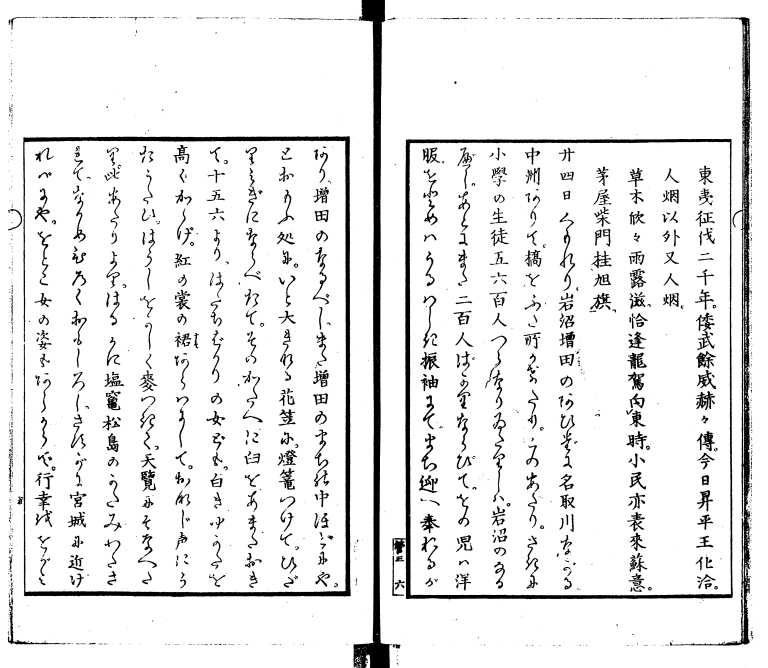 東夷征伐二千年。倭武餘威赫々傳。今日昇平王化洽。
人烟以外又人烟。
草木欣々雨露滋。恰逢龍駕向東時。小民亦表來蘇意。
茅屋柴門挂旭旗。
廿四日くもれり。岩沼増田のあひだに名取川ながる
中州ありて。橋をふた所かけたり。このあたり。さきに
小學の生徒五六百人つらなりゐたりしハ。岩沼のなる
べし。あとにまた二百人ばかりならびて。その児ハ洋
服を
うるはしき振袖にて。まち迎へ奉れるが
あり。増田のなるべし。また増田のまちの中ほどにや。
とおもふ処に。いと大きなる花笠に。燈篭つけて。ひだ
りみぎにならべたて。そのかたへに臼をあまたおき
て。十五六より。はたちばかりの女ども。白きゆかたを
高くかゝげ。紅の裳の裾あらハして。おなじ声にう
たうたひ。はやしをかしく麥つきて。天覽にそなへた
り。此あたりより。はるかに塩竈松島のかたみわたさ
れて。ながめもひろくおもしろし。さすがに宮城に近け
ればにや。をとこ女の姿もあしからず。行幸ををがミ
管三
六